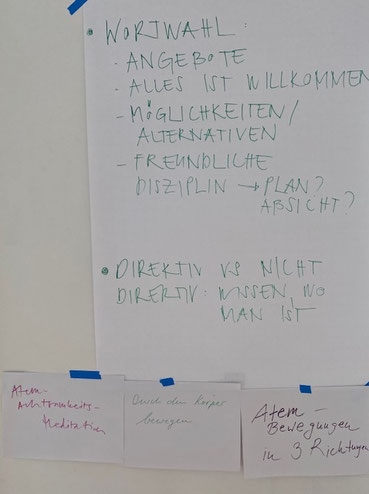 • WORTWAHL:
- ANGEBOTE
- ALLES IST WILLKOMMEN
- MÖGLICHKEITEN/
ALTERNATIVEN
- FREUNDLICHE
DISZIPLIN → PLAN?
ABSICHT?
• DIREKTIV VS NICHT
DIREKTIV: WISSEN, WO
MAN IST
Atem-
Achtsamkeits-
Meditation
Durch den Körper
bewegen
Atem-
Bewegungen
in 3 Richtungen